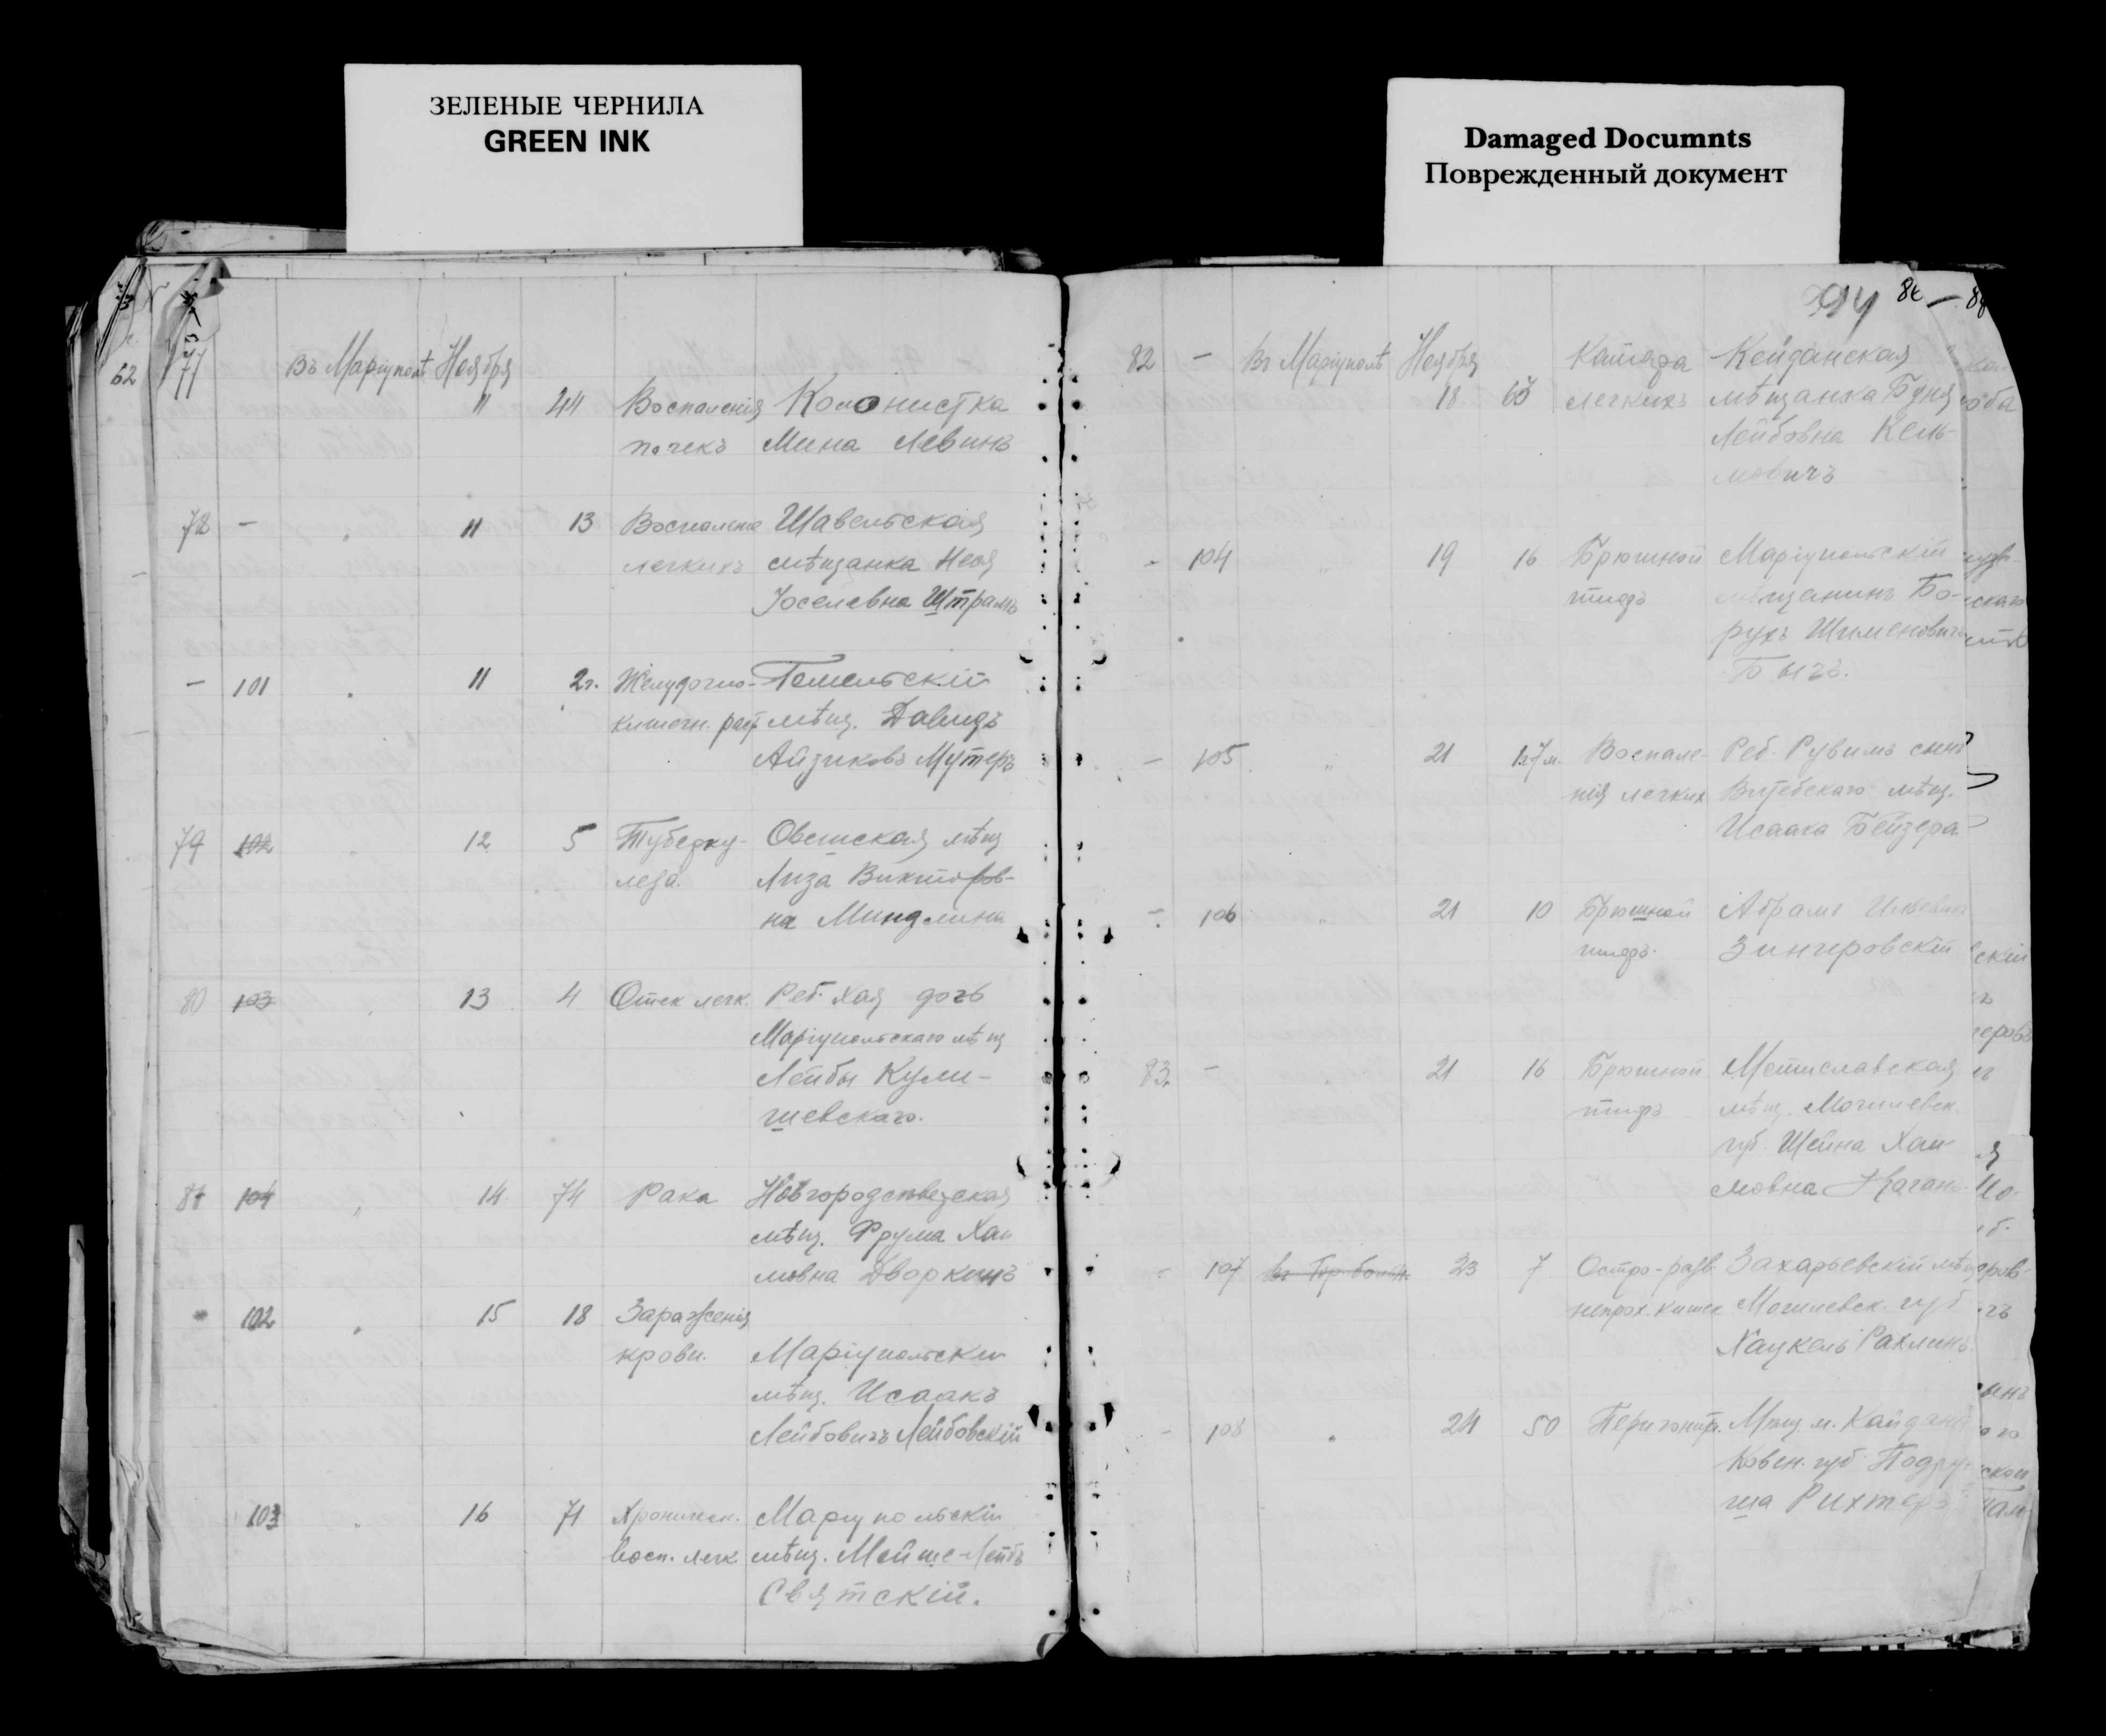 ЗЕЛЕНЫЕ ЧЕРНИЛА
GREEN INK
Damaged Documnts
Поврежденный документ
62
77 Въ Маріуполѣ Ноября
11 44 Воспаленія Колонистка
почекъ Мина Левинъ
78 - " 11 13 Воспаленіе Шавельская
легкихъ мѣщанка Нехя
Іоселевна Штрамъ
- 101 " 11 2г. Желудочно- Гомельскій
кишечн. мѣщ. Давидъ
Айзиковъ Мутеръ
79 102 " 12 5 Туберку-
леза. мѣщ
Лиза Викторов-
на Миндлина
80 103 " 13 4 Отек легк. Реб. Хая дочь
Маріупольскаго мѣщ
Лейбы Кули-
шевскаго.
81 104 " 14 74 Рака
мѣщ. Фрума Хаи
мовна Дворкинъ
- 102 " 15 18 Зараженія
крови. Маріупольскій
мѣщ. Исаакъ
Лейбовичъ Лейбовскій
103 " 16 71 Хроническ. Маріупольскій
восп. легк. мѣщ. Мейше-Лейбъ
Святскій.
94 86 -
82 - Въ Маріуполѣ Ноября Катара Кейданская
18 63 легкихъ мѣщанка Буня
Лейбовна Кель-
мовичъ
- 104 " 19 16 Брюшной Маріупольскій
тифъ мѣщанинъ Бо-
рухъ Шименовичъ
Быкъ.
- 105 " 21 Воспале- Реб. Рувимъ сынъ
нія легких Витебскаго мѣщ.
Исаака Бейзера
- 106 " 21 10 Брюшной Абрамъ
тифъ. Зингеровскій
83. - " 21 16 Брюшной Мстиславская
тифъ мѣщ. Могилевск.
губ. Шейна Хаи
мовна Каганъ
- 107 Въ Гор. больн. 23 7 Остро-разв Захарьевскій мѣщ
непрох. кишек Могилевск. губ
Хацкель Рахлинъ
- 108 " 24 50 Перитонит. Мѣщ м. Кайданы
Ковен. губ
Рихтеръ